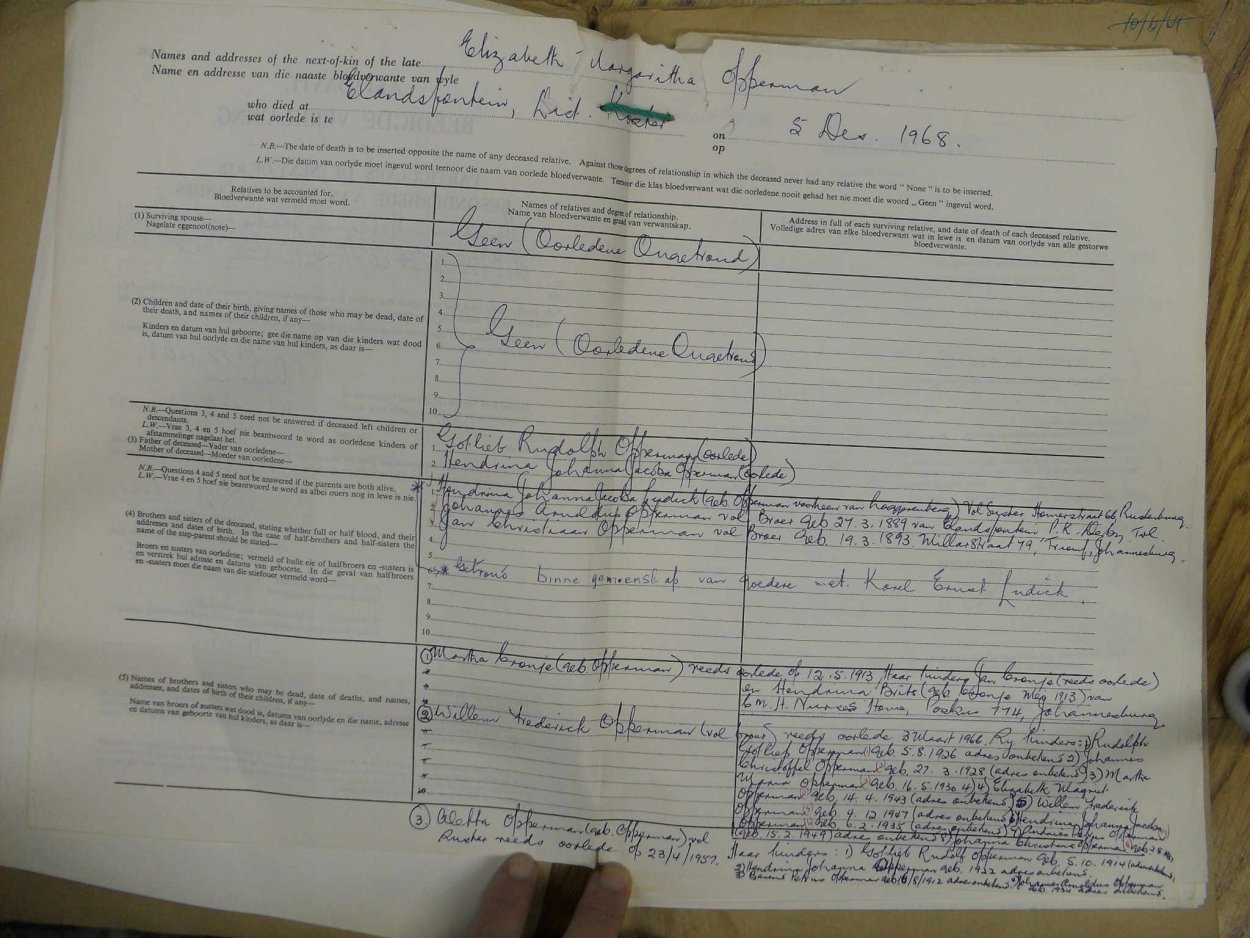 10/6/69
Names and addresses of the next-of-kin of the late Elizabeth Margaritha Opperman
Name en addresse van die naaste bloedverwante van wyle
who died at Elandsfontein, Dist. Koster on 5 Des. 1968.
wat oorlede is te op
N.B.—The date of death is to be inserted opposite the name of any deceased relative. Against those degrees of relationship in which the deceased never had any relative the word "None" is to be inserted.
L.W.—Die datum van oorlyde moet ingevul word teenoor die naam van oorlede bloedverwante. Teenoor die klas bloedverwant wat die oorledene nooit gehad het nie moet die woord „Geen" ingevul word.
Relatives to be accounted for.
Bloedverwante wat vermeld moet word.
Names of relatives and degree of relationship.
Name van bloedverwante en graad van verwantskap.
Address in full of each surviving relative, and date of death of each deceased relative.
Volledige adres van elke bloedverwant wat in lewe is en datum van oorlyde van alle gestorwe
bloedverwante.
(1) Surviving spouse—
Nagelate eggenoot(note)—
Geen (Oorledene Ongetroud)
(2) Children and date of their birth, giving names of those who may be dead, date of
their death, and names of their children, if any—
Kinders en datum van hul geboorte; gee die name op van die kinders wat dood
is, datum van hul oorlyde en die name van hul kinders, as daar is—
1.
2.
3.
4.
5.
6.
7.
8.
9.
10.
Geen (Oorledene Ongetroud)
N.B.—Questions 3, 4 and 5 need not be answered if deceased left children or
descendants.
L.W.—Vrae 3, 4 en 5 hoef nie beantwoord te word as oorledene kinders of
afstammelinge nagelaat het.
(3) Father of deceased—Vader van oorledene—
Mother of deceased—Moeder van oorledene—
1. Gotlieb Rudolph Opperman (oorlede)
2. Hendrina Johanna Jacoba Opperman (oorlede)
N.B.—Questions 4 and 5 need not be answered if the parents are both alive.
L.W.—Vrae 4 en 5 hoef nie beantwoord te word as albei ouers nog in lewe is nie.
(4) Brothers and sisters of the deceased, stating whether full or half blood, and their
addresses and dates of birth. In the case of half-brothers and half-sisters the
name of the step-parent should be stated—
Broers en susters van oorledene; vermeld of hulle eie of halfbroers en -susters is
en verstrek hul adresse en datums van geboorte. In die geval van halfbroers
en -susters moet die naam van die stiefouer vermeld word—
* 1. Hendrina Johanna Jacoba Ludick (geb. Opperman voorheen van Heyningen) Vol Suster Homerstraat 66, Rustenburg.
2. Johannes Arnoldus Opperman vol Broer geb 27.3.1889 van Elandsfontein, P.K. Derby, Tvl.
3. Jan Christiaan Opperman vol Broer geb. 19.3.1893 straat 79, Triomf, Johannesburg.
4.
* Getroud binne gemeenskap van goedere met Karel Ernst Ludick.
7.
8.
9.
10.
(5) Names of brothers and sisters who may be dead, date of deaths, and names,
addresses, and dates of birth of their children, if any—
Name van broers of susters wat dood is, datum van oorlyde en die name, adresse
en datums van geboorte van hul kinders, as daar is—
(1) Martha Cronje (geb Opperman) reeds oorlede op 12.5.1913 Haar kinders Jan Cronje (reeds oorlede)
en Hendrina Brits (geb Cronje Mei 1913) van
Home, Posbus 774, Johannesburg
(2) Willem Frederick Opperman (vol broer) reeds oorlede 3 Maart 1966. Sy kinders: 1) Rudolph
Gotliep Opperman geb 5.8.1926 adres onbekend 2) Johannes
Christoffel Opperman geb. 27.3.1928 (adres onbekend) 3) Martha
Maria Opperman geb. 16.5.1930 4) Elizabeth
Opperman geb. 14.4.1943 (adres onbekend) 5) Willem Frederick
Opperman geb. 4.12.1947 (adres onbekend) Hendrina Johanna Jacoba
Opperman geb 6.2.1935 (adres onbekend) 7) Andries Opperman
(geb 15.2.1949) adres onbekend 8) Johanna Christina Opperman geb
(3) Aletta Opperman (geb. Opperman) vol
Suster reeds oorlede op 23/4/1957.
Haar kinders: 1) Gotlieb Rudolf Opperman geb. 5.10.1914 (adres onbekend)
2) Hendrina Johanna Opperman geb. 1922 adres onbekend.
3) Opperman geb /8/1912 adres onbekend. Johannes Arnoldus Opperman
geb. adres onbekend.